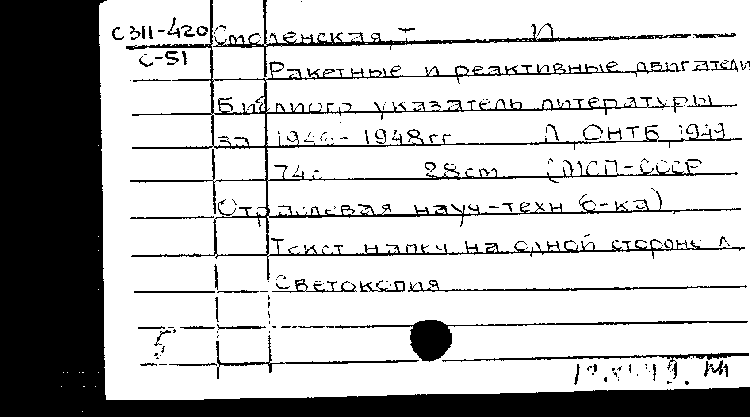 С311-420 Смоленская, Т И
С-51
Ракетные и реактивные двигатели
Библиогр указатель литературы
за 1946-1948гг Л, ОНТБ, 1949
74с 28см (МСП-СССР
Отраслевая науч-техн б-ка)
Текст напеч на одной стороне л
Светокопия
5